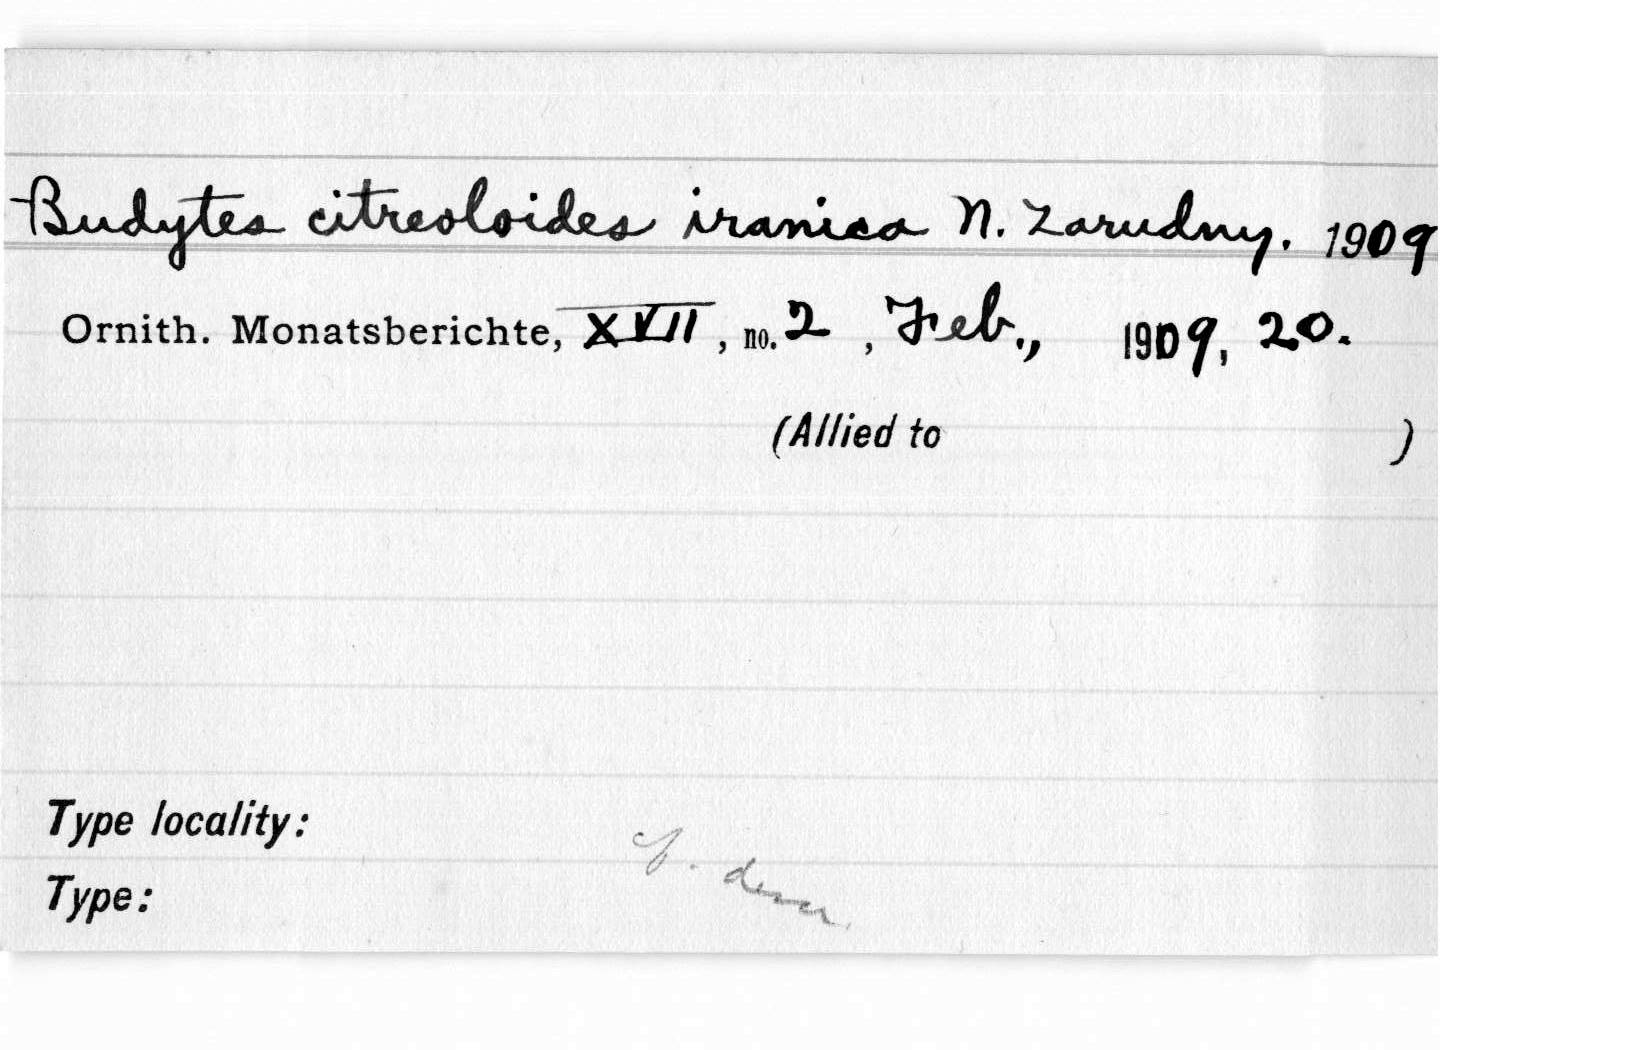 Budytes citreoloides iranica N. Zarudny. 1909
Ornith. Monatsberichte, XVII, no. 2, Feb., 1909, 20.
(Allied to )
Type locality:
Type: